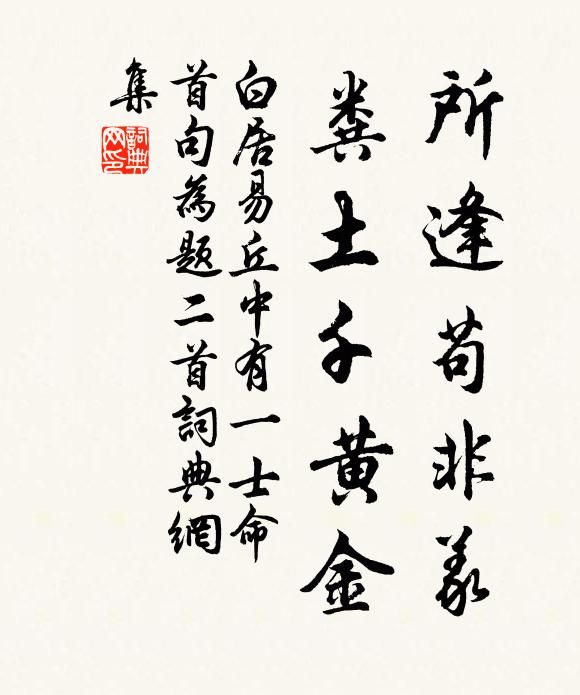 所逢苟非義
糞土千黃金
白居易丘中有一士命
首句為題二首詞典網
集
詞典網印